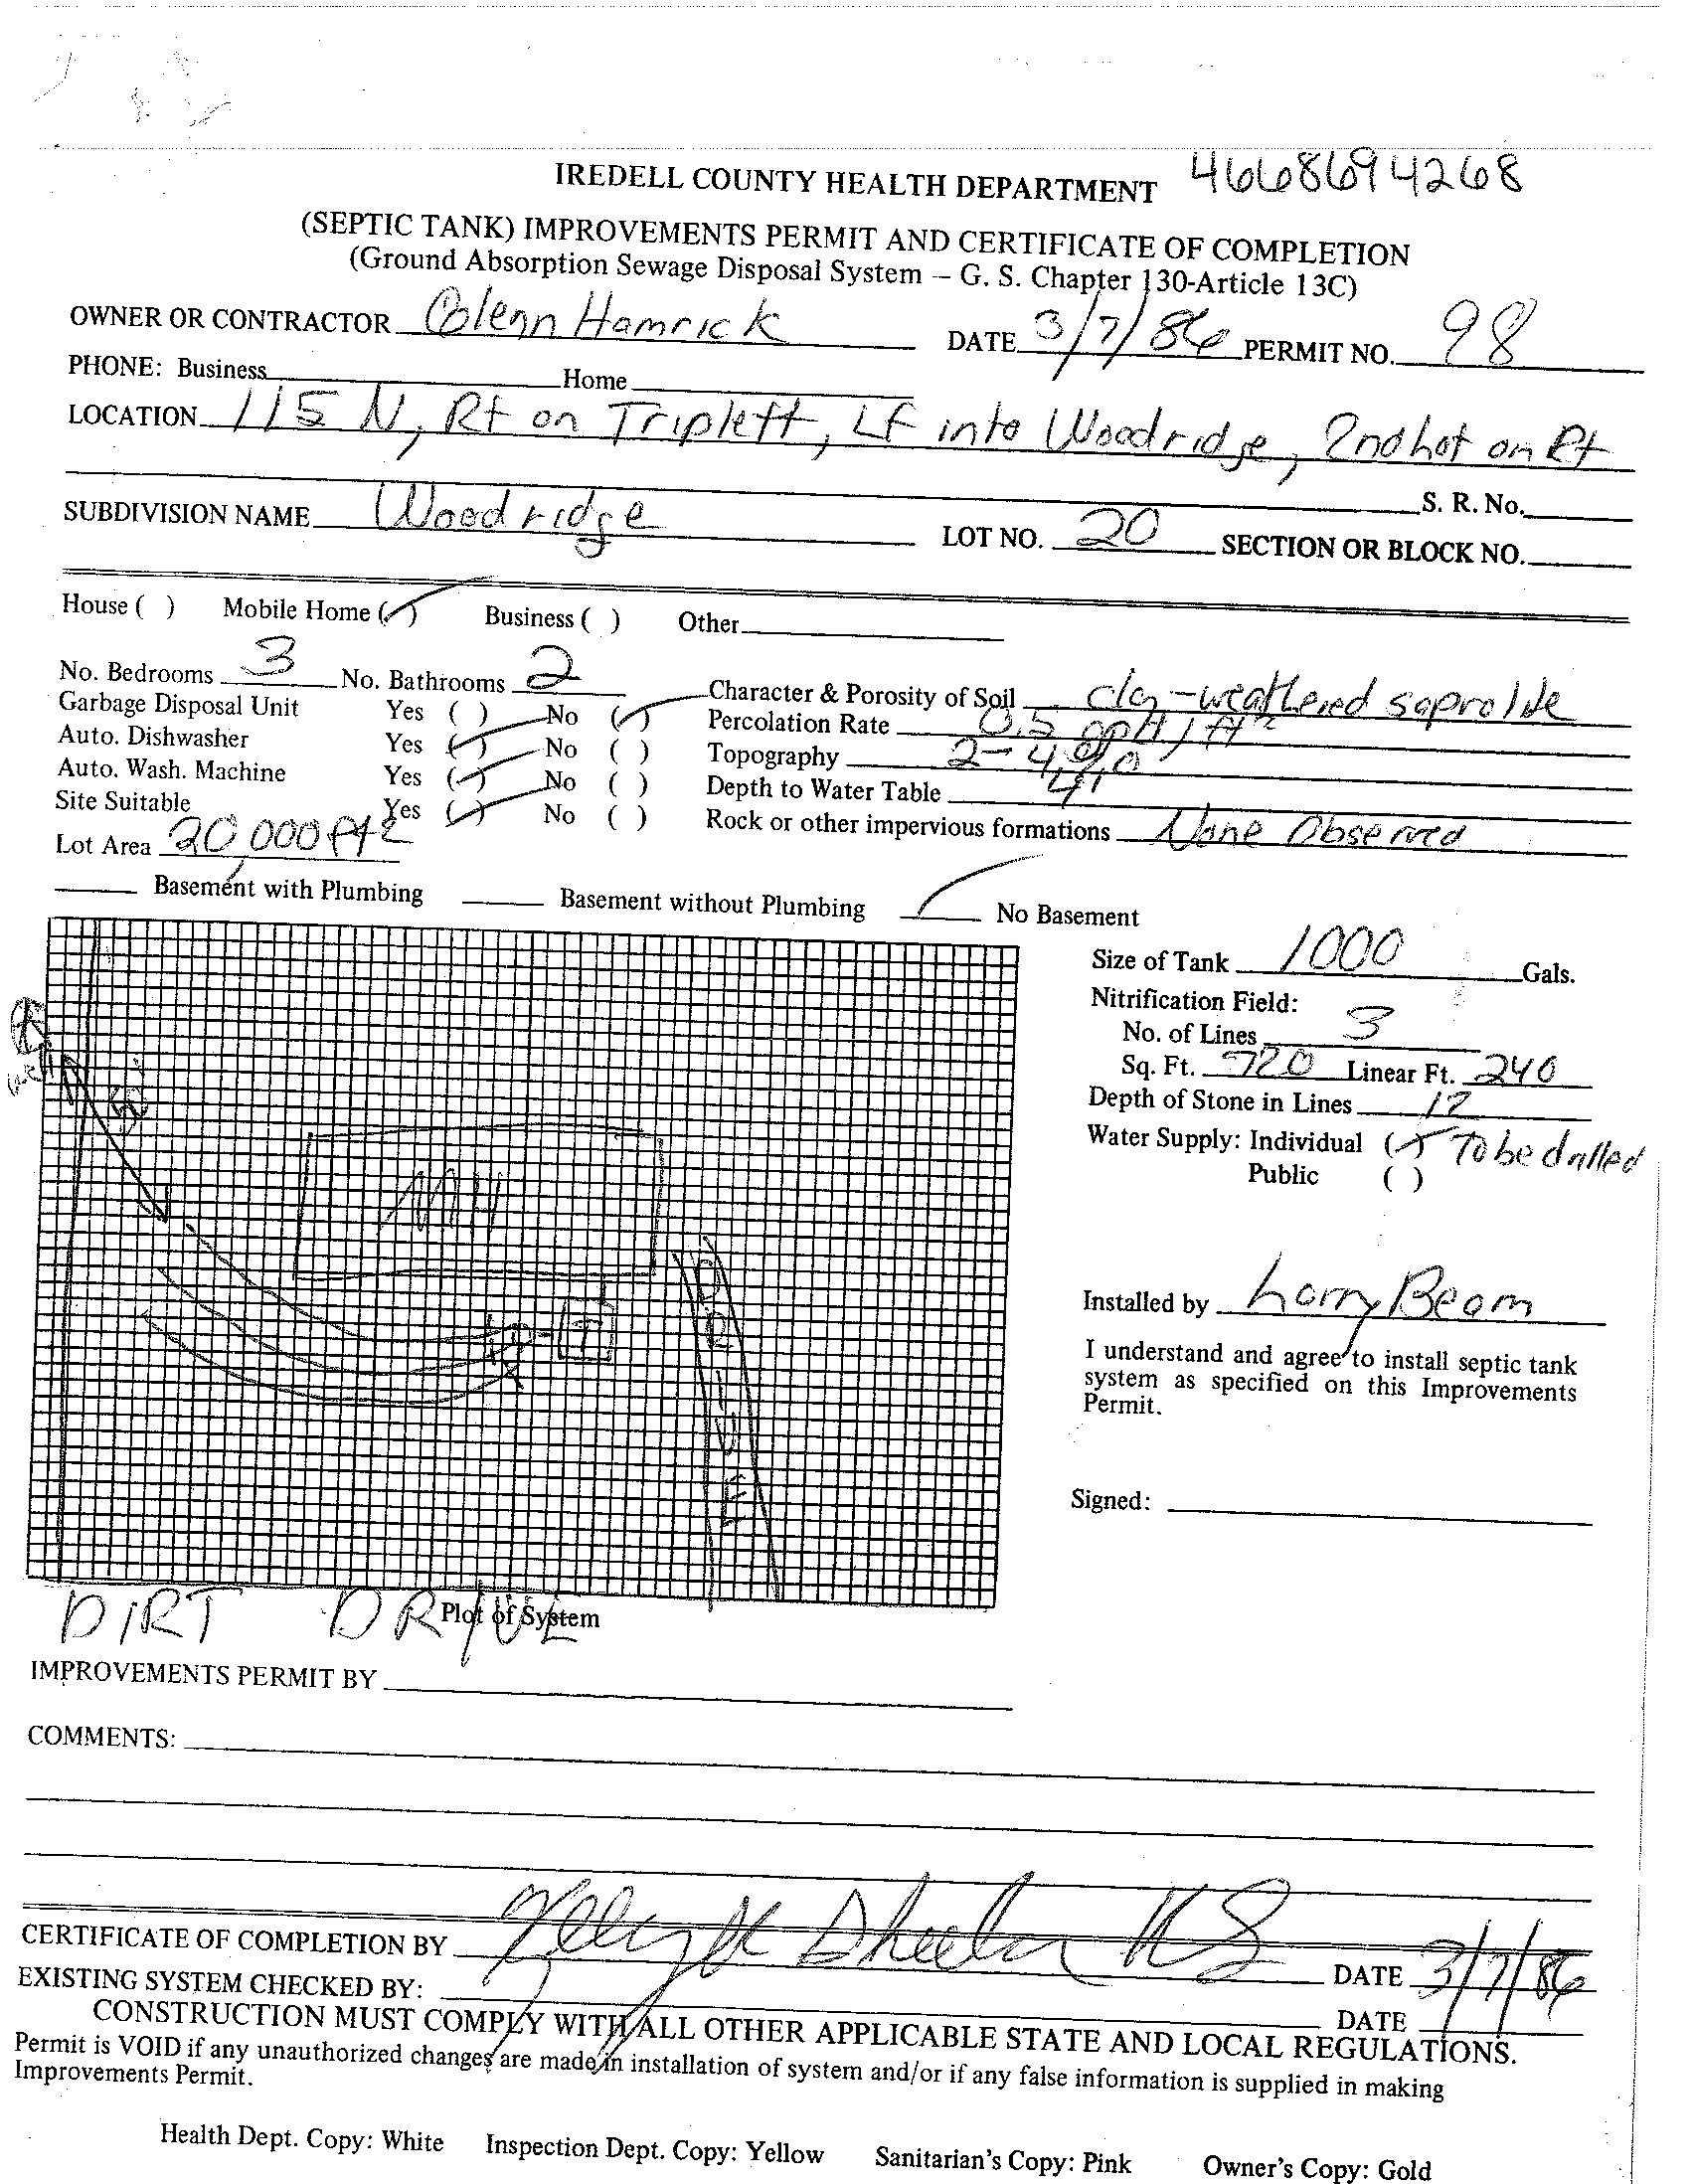 IREDELL COUNTY HEALTH DEPARTMENT 4668694268
(SEPTIC TANK) IMPROVEMENTS PERMIT AND CERTIFICATE OF COMPLETION
(Ground Absorption Sewage Disposal System – G. S. Chapter 130-Article 13C)
OWNER OR CONTRACTOR Glenn Hamrick DATE 3/7/86 PERMIT NO. 98
PHONE: Business Home
LOCATION 115 N, Rt on Triplett, Lf into Woodridge, 2nd Lot on Rt
S. R. No.
SUBDIVISION NAME Woodridge LOT NO. 20 SECTION OR BLOCK NO.
House ( ) Mobile Home (✓) Business ( ) Other
No. Bedrooms 3 No. Bathrooms 2
Garbage Disposal Unit Yes ( ) No (✓)
Auto. Dishwasher Yes (✓) No ( )
Auto. Wash. Machine Yes (✓) No ( )
Site Suitable Yes (✓) No ( )
Lot Area 20,000 ft2
Character & Porosity of Soil clay-weathered saprolite
Percolation Rate 0.5 gpd/ft2
Topography 2-4%
Depth to Water Table 4'
Rock or other impervious formations None Observed
Basement with Plumbing Basement without Plumbing ✓ No Basement
Size of Tank 1000 Gals.
Nitrification Field:
No. of Lines 3
Sq. Ft. 720 Linear Ft. 240
Depth of Stone in Lines 12
Water Supply: Individual (✓) To be drilled
Public ( )
well
50'
MH
T
DRIVE
Installed by Larry Beam
I understand and agree to install septic tank
system as specified on this Improvements
Permit.
Signed:
DIRT DRIVE
Plot of System
IMPROVEMENTS PERMIT BY
COMMENTS:
CERTIFICATE OF COMPLETION BY DATE 3/7/86
EXISTING SYSTEM CHECKED BY: DATE
CONSTRUCTION MUST COMPLY WITH ALL OTHER APPLICABLE STATE AND LOCAL REGULATIONS.
Permit is VOID if any unauthorized changes are made in installation of system and/or if any false information is supplied in making
Improvements Permit.
Health Dept. Copy: White Inspection Dept. Copy: Yellow Sanitarian's Copy: Pink Owner's Copy: Gold